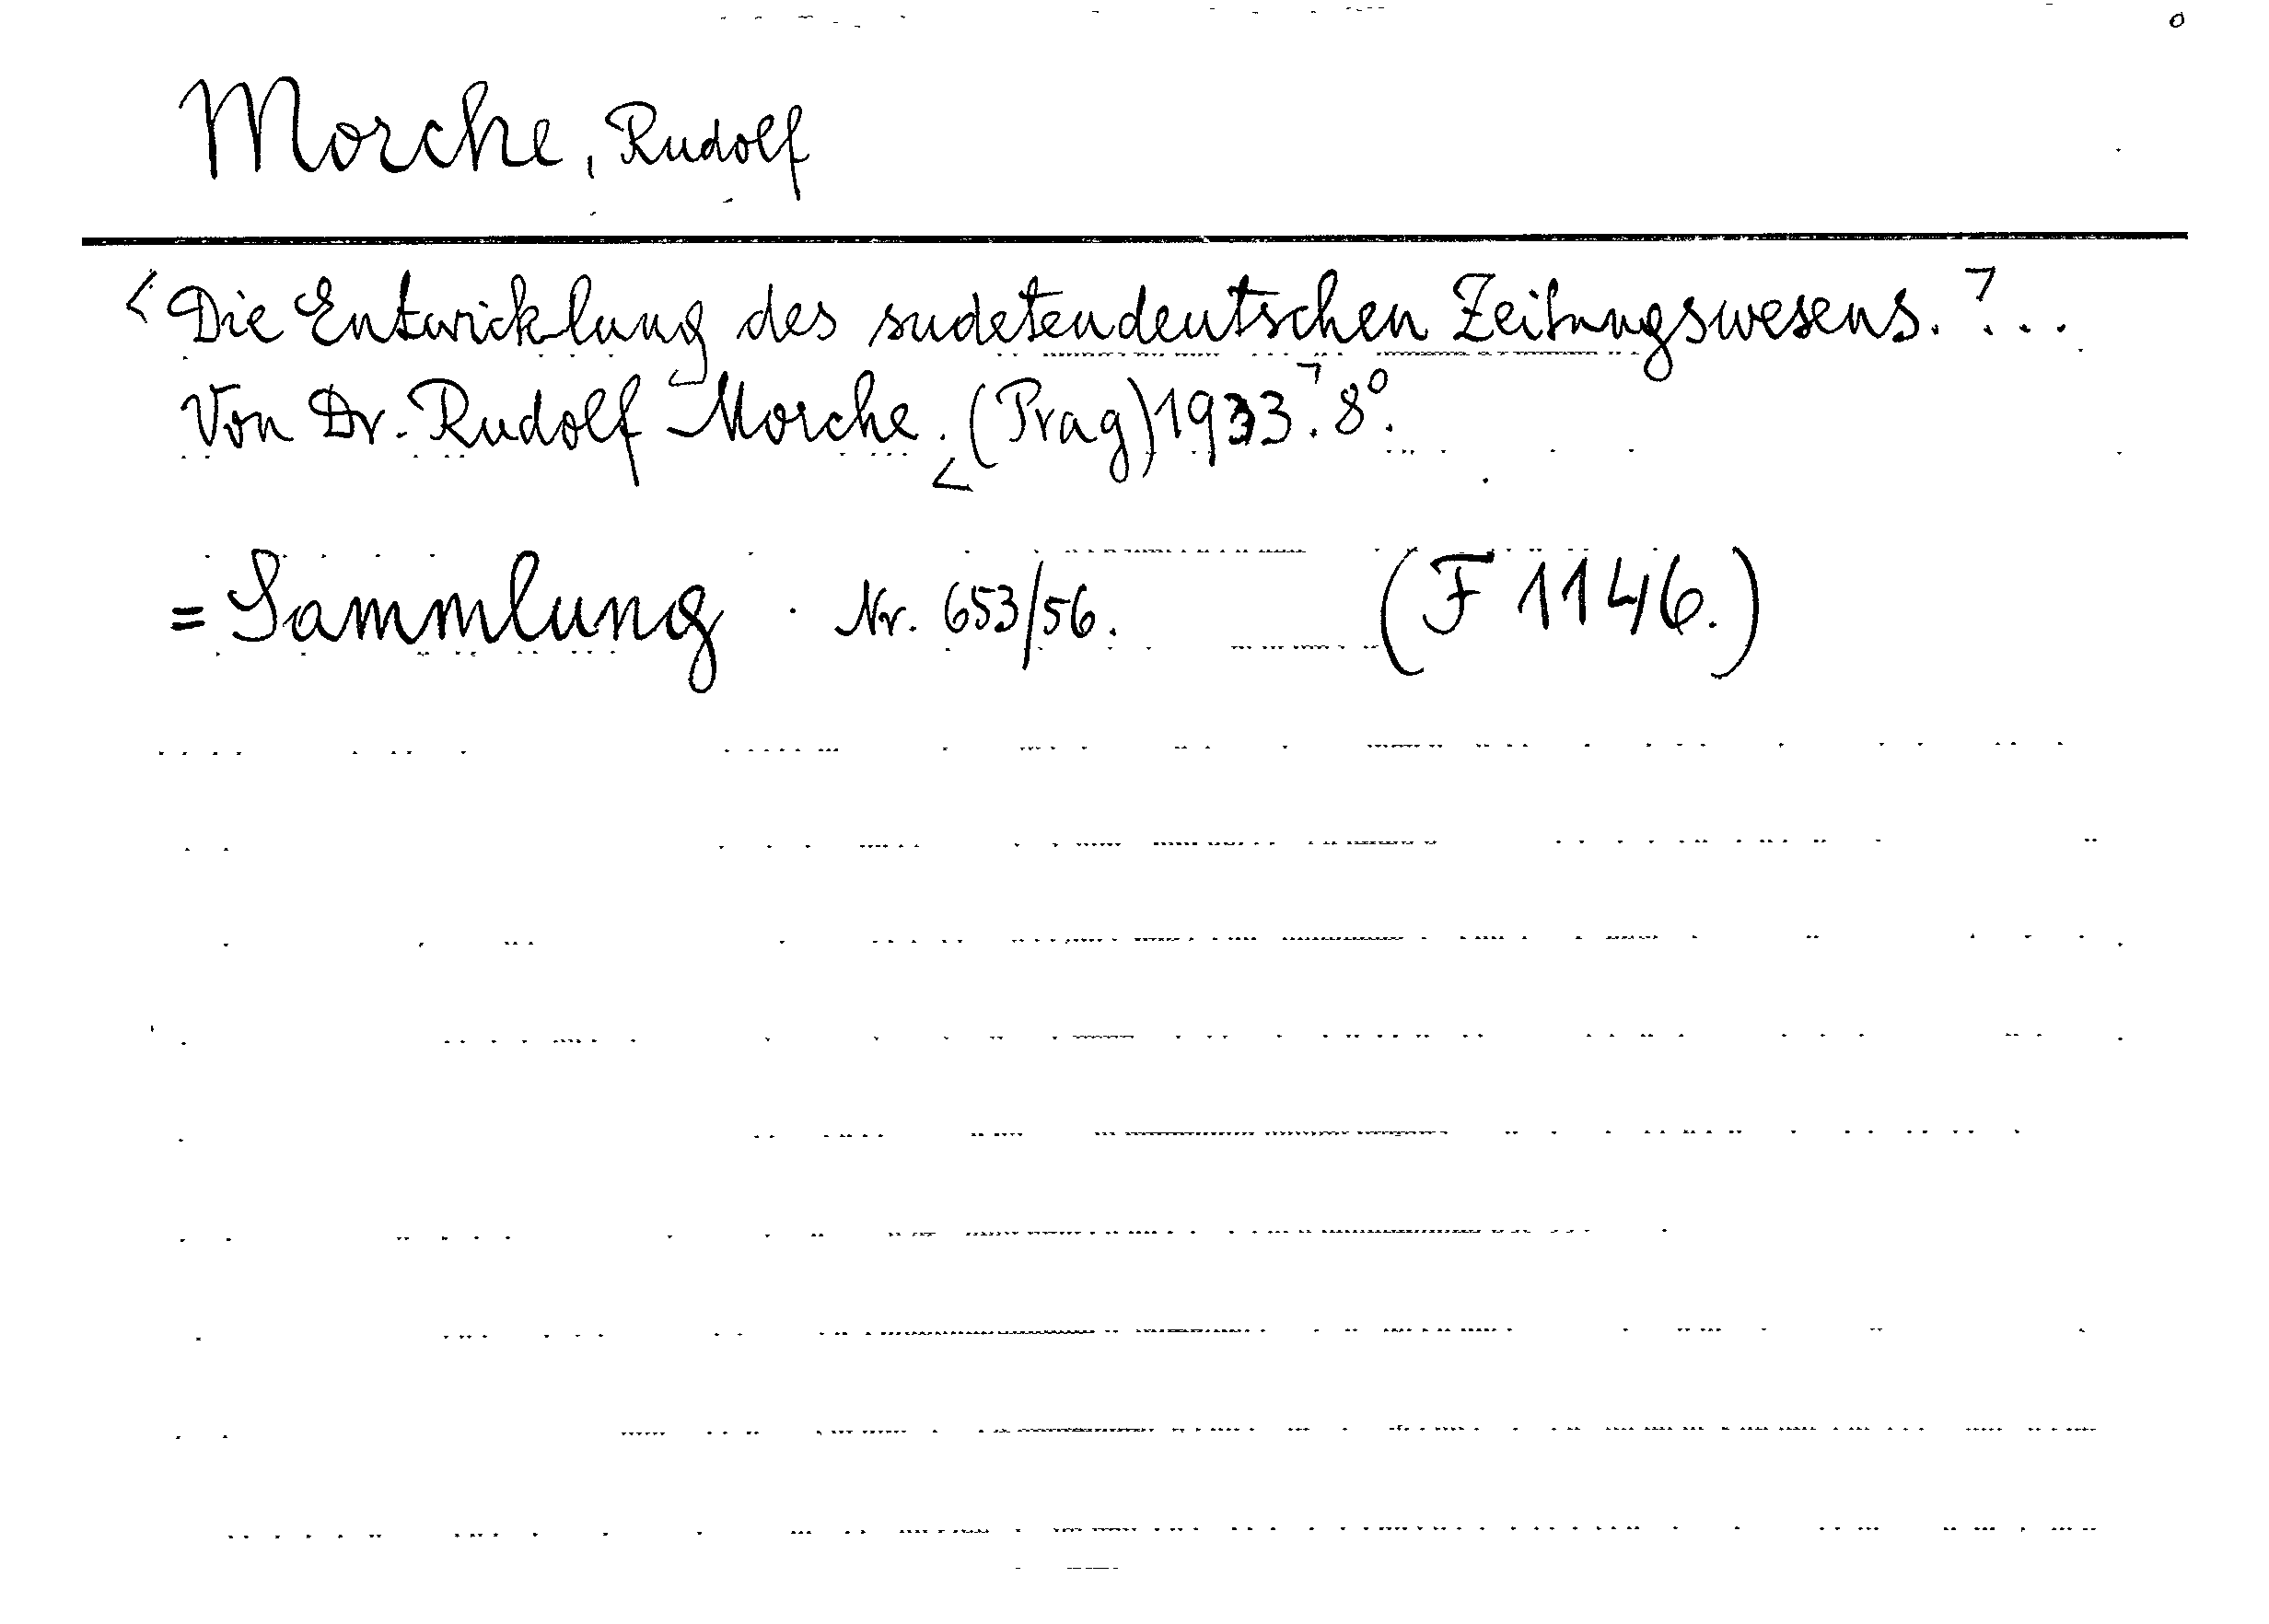 Morche, Rudolf
<Die Entwicklung des sudetendeutschen Zeitungswesens.> ...
Von Dr. Rudolf Morche. <(Prag) 1933.> 8°.
= Sammlung Nr. 653/56. (F 1146.)